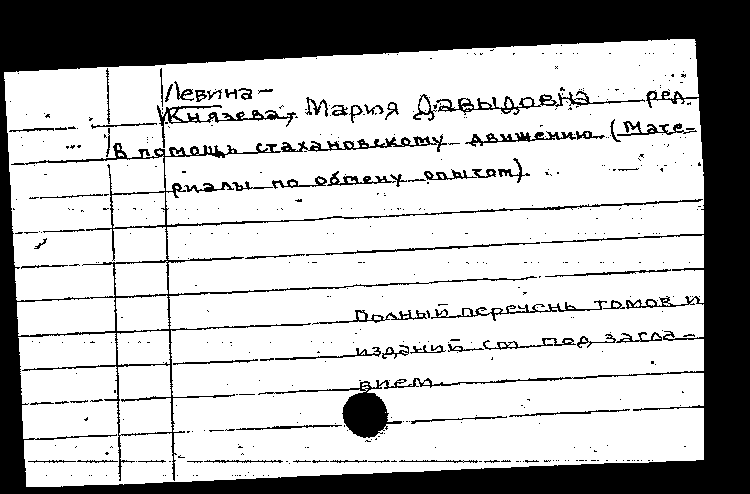 Левина-
Князева, Мария Давыдовна ред.
В помощь стахановскому движению. (Мате-
риалы по обмену опытом).
Полный перечень томов и
изданий см под загла-
вием.